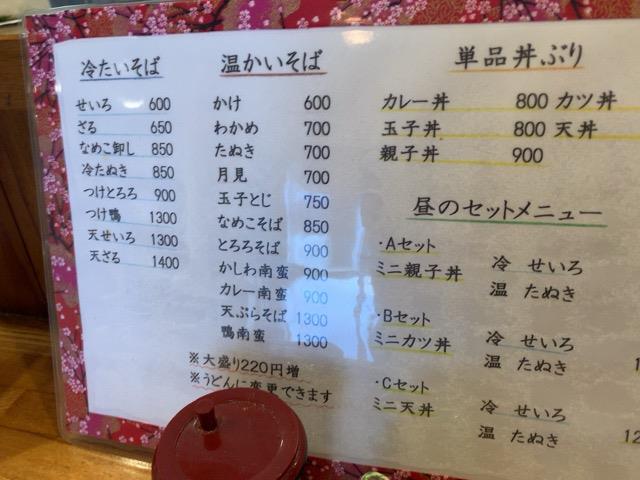 冷たいそば
せいろ 600
ざる 650
なめこ卸し 850
冷たぬき 850
つけとろろ 900
つけ鴨 1300
天せいろ 1300
天ざる 1400
温かいそば
かけ 600
わかめ 700
たぬき 700
月見 700
玉子とじ 750
なめこそば 850
とろろそば 900
かしわ南蛮 900
カレー南蛮 900
天ぷらそば 1300
鴨南蛮 1300
※大盛り220円増
※うどんに変更できます
単品丼ぶり
カレー丼 800 カツ丼
玉子丼 800 天丼
親子丼 900
昼のセットメニュー
・Aセット
ミニ親子丼 冷 せいろ
温 たぬき
・Bセット
ミニカツ丼 冷 せいろ
温 たぬき
・Cセット
ミニ天丼 冷 せいろ
温 たぬき